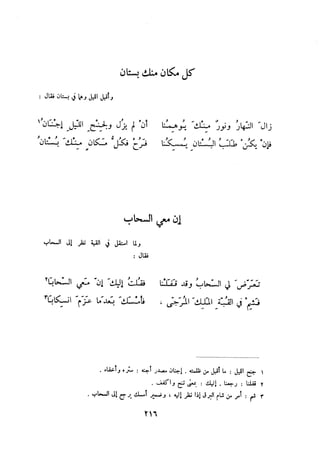 كل مكان منك بستان
وأقبل الليل وهما في بستان فقال :
زالَ النّهارُ ونورٌ مِنكَ يُوهِمُنا أنْ لم يَزُلْ ولِجِنْحِ اللّيلِ إجْنانُ١
فإنْ يكُنْ طَلَبُ البُستانِ يُمسِكُنا فرُحْ فكُلّ مكانٍ مِنكَ بُستانُ
إن معي السحاب
ولما استقل في القبة نظر إلى السحاب
فقال :
تعَرّضَ لي السّحابُ وقد قفَلْنا فقُلتُ إليكَ إنّ مَعي السّحابَا٢
فشِمْ في القُبّةِ المَلِكَ المُرَجّى ، فأمسَكَ بَعدَما عزَمَ انسِكابَا٣
١ جنح الليل : ما أقبل من ظلمته . إجنان مصدر أجنه : ستره وأخفاه .
٢ قفلنا : رجعنا . إليك : بمعنى تنح واكفف .
٣ شم : أمر من شام البرق إذا نظر إليه ، وضمير أمسك يرجع إلى السحاب .
٢١٦